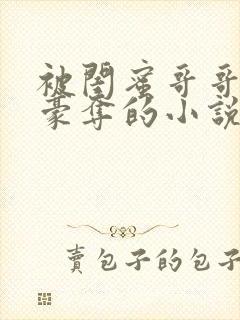 被閨蜜哥哥
豪奪的小說
賣包子的包子